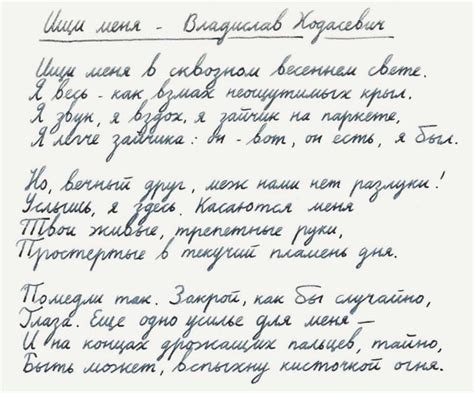 Ищи меня - Владислав Ходасевич
Ищи меня в сквозном весеннем свете.
Я весь - как взмах неощутимых крыл.
Я звук, я вздох, я зайчик на паркете,
Я легче зайчика: он - вот, он есть, я был.
Но, вечный друг, меж нами нет разлуки!
Услышь, я здесь. Касаются меня
Твои живые, трепетные руки,
Простертые в текучий пламень дня.
Помедли так. Закрой, как бы случайно,
Глаза. Еще одно усилье для меня —
И на концах дрожащих пальцев, тайно,
Быть может, вспыхну кисточкой огня.